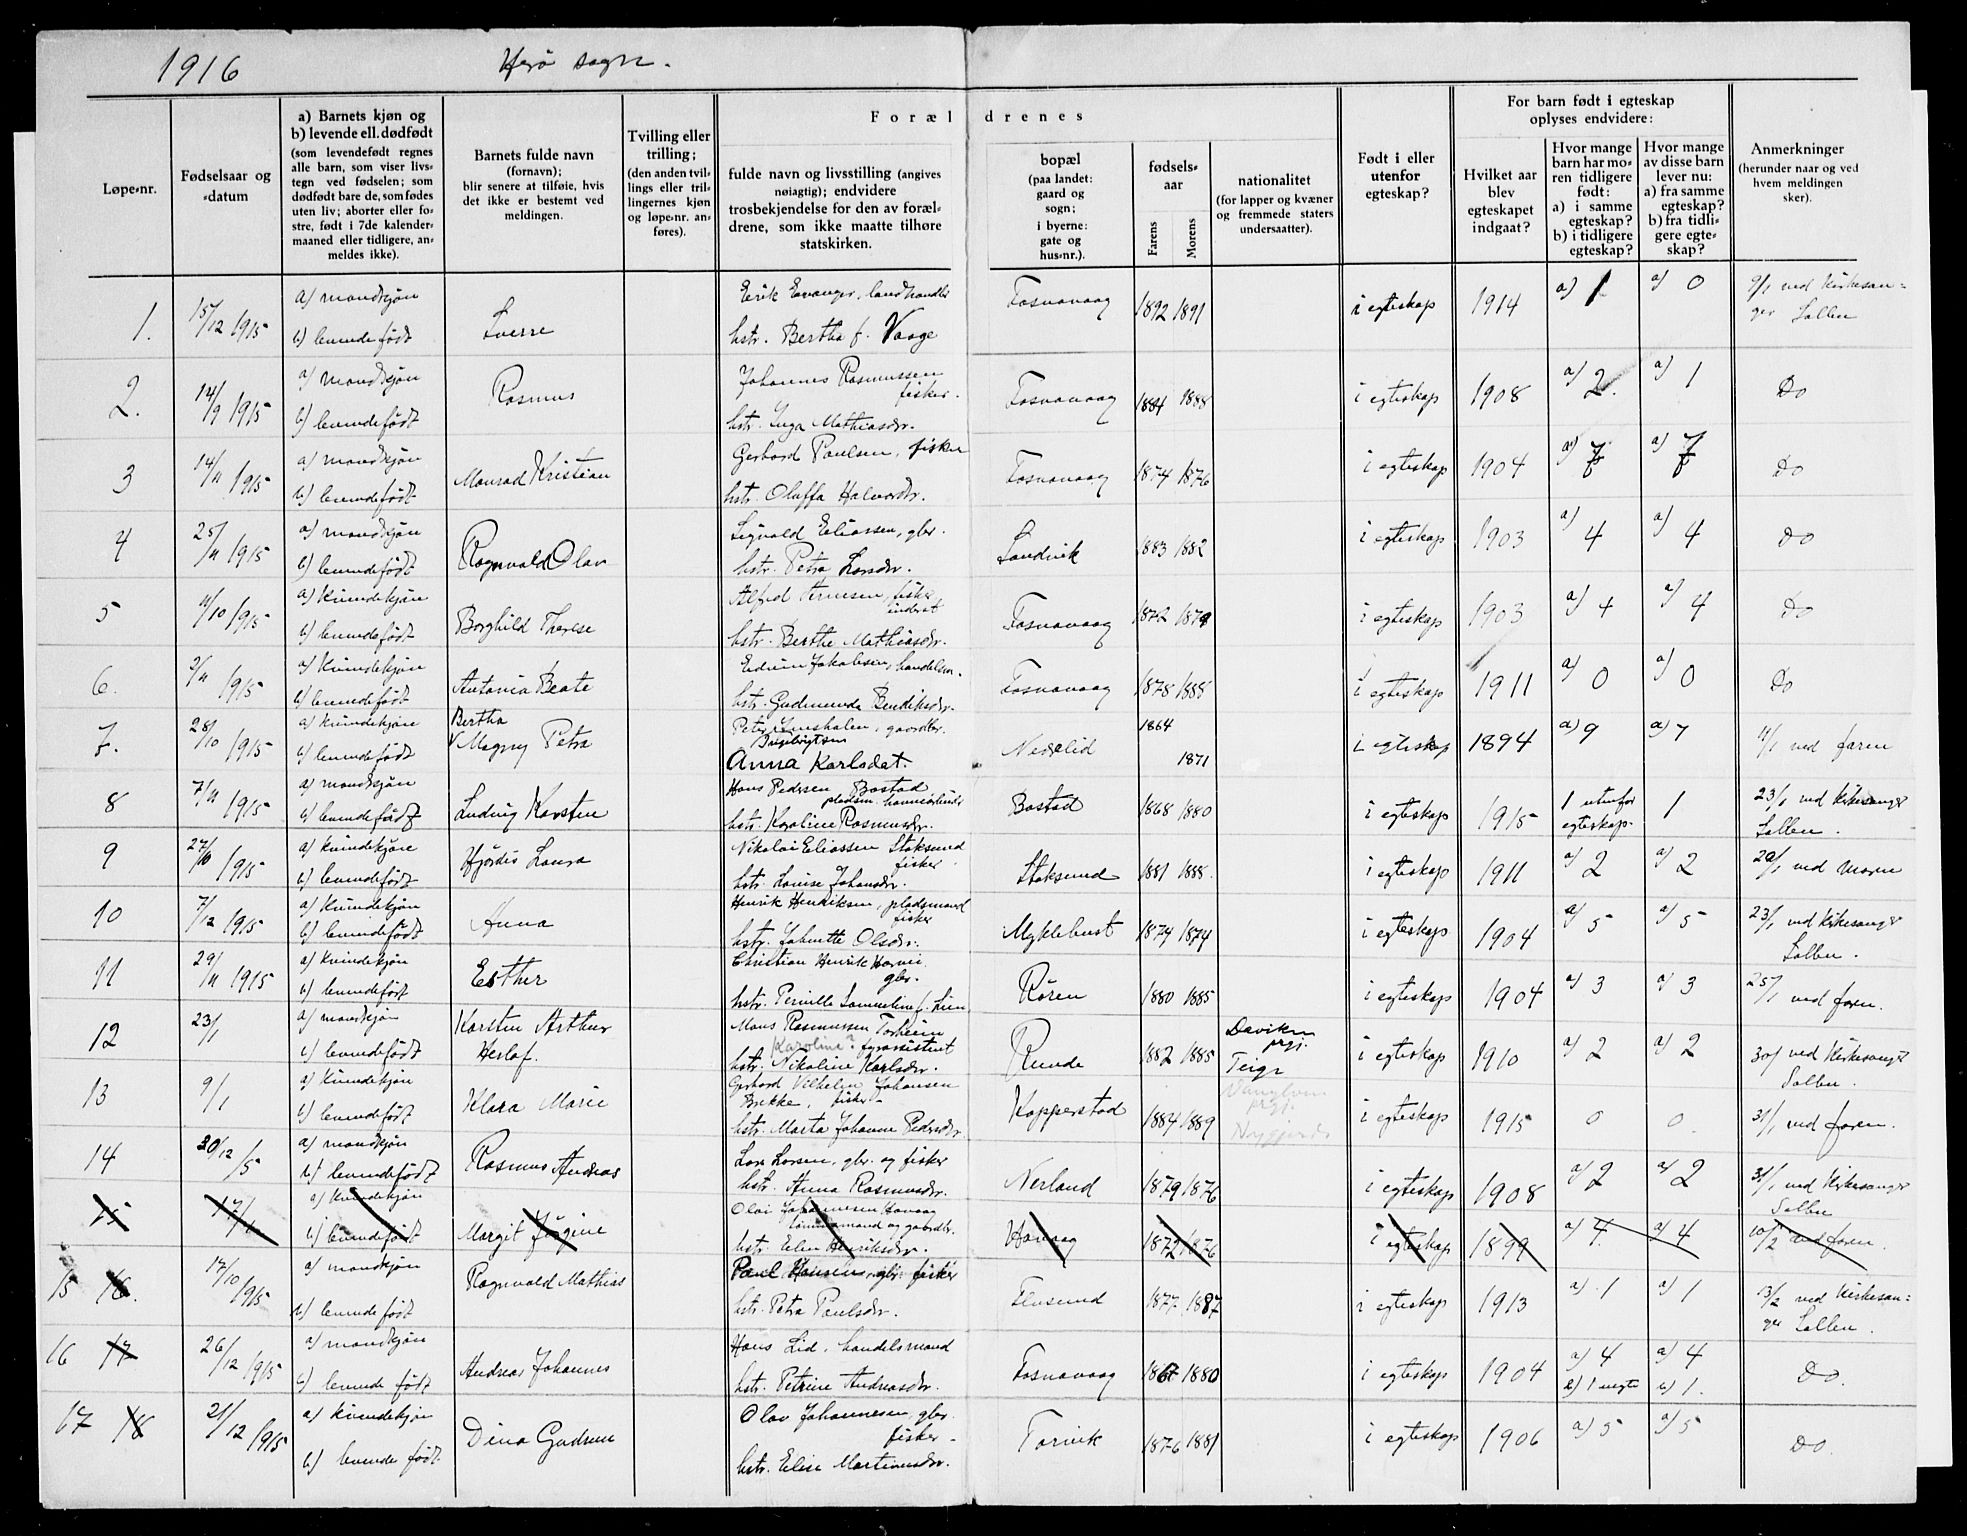 1916
Herø sogn.
Løpe-nr.
Fødselsaar og -datum
a) Barnets kjøn og
b) levende ell. dødfødt
(som levendefødt regnes
alle barn, som viser livs-
tegn ved fødselen; som
dødfødt bare de, som fødes
uten liv; aborter eller fo-
stre, født i 7de kalender-
maaned eller tidligere, an-
meldes ikke).
Barnets fulde navn
(fornavn);
blir senere at tilføie, hvis
det ikke er bestemt ved
meldingen.
Tvilling eller
trilling;
(den anden tvil-
lings eller tril-
lingernes kjøn
og løpe-nr. an-
føres).
Forældrenes
fulde navn og livsstilling (angives
nøiagtig); endvidere
trosbekjendelse for den av foræl-
drene, som ikke maatte tilhøre
statskirken.
bopæl
(paa landet:
gaard og
sogn;
i byerne:
gate og
hus-nr.).
fødsels-
aar
Farens
Morens
nationalitet
(for lapper og kvæner
og fremmede staters
undersaatter).
Født i eller
utenfor
egteskap?
For barn født i egteskap
oplyses endvidere:
Hvilket aar
blev
egteskapet
indgaat?
Hvor mange
barn har mo-
ren tidligere
født:
a) i samme
egteskap?
b) i tidligere
egteskap?
Hvor mange
av disse barn
lever nu:
a) fra samme
egteskap?
b) fra tidli-
gere egte-
skap?
Anmerkninger
(herunder naar og ved
hvem meldingen
sker).
1. 15/12 1915 a) mandkjøn b) levendefødt Sverre landhandler hstr. Bertha f. Vaage Fosnavaag 1892 1891 i egteskap 1914 a) 1 a) 0 9/1 ved Kirkesan-
ger Solben
2. 14/9 1915 a) mandkjøn b) levendefødt Rasmus Johannes Rasmussen fisker. hstr. Inga Mathiasdr. Fosnavaag 1884 1888 i egteskap 1908 a) 2. a) 1 Do
3 14/11 1915 a) mandkjøn b) levendefødt Monrad Kristian Gerhard Paulsen, fisker hstr. Oluffa Halvordr. Fosnavaag 1874 1876 i egteskap 1904 a) 7 a) 7 Do
4 25/11 1915 a) mandkjøn b) levendefødt Ragnvald Olav Sigvald Eliassen, gbr. hstr. Petra Larsdr. Sandvik 1883 1882 i egteskap 1903 a) 4 a) 4 Do
5 11/10 1915 a) kvindekjøn b) levendefødt Borghild Therese Alfred fisker hstr. Berthe Mathiasdr. Fosnavaag 1872 1879 i egteskap 1903 a) 4 a) 4 Do
6. 2/11 1915 a) kvindekjøn b) levendefødt Antonia Beate Edvin Jakobsen, handelsm. hstr. Gudmunda Bendiksdr. Fosnavaag 1878 1888 i egteskap 1911 a) 0 a) 0 Do
7. 28/10 1915 a) kvindekjøn b) levendefødt Bertha Magny Petra Peter gaardbr. Ingebrigtsen Anna Karlsdat. Nedrelid 1864 1871 i egteskap 1894 a) 9 a) 7 11/1 ved faren
8 7/11 1915 a) mandkjøn b) levendefødt Ludvig Karsten Hans Pedersen Bostad pladsm. hstr. Karoline Rasmusdr. Bostad 1868 1880 i egteskap 1915 1 utenfor egteskap. 1 23/1 ved Kirkesanger
Solben.
9 27/10 1915 a) kvindekjøn b) levendefødt Hjørdis Laura Nikolai Eliassen Stoksund fisker hstr. Louise Johansdr. Stoksund 1881 1888. i egteskap 1911 a) 2 a) 2 20/1 ved moren
10 7/12 1915 a) kvindekjøn b) levendefødt Anna Henrik Henriksen, pladsmand fisker hstr. Jahnette Olsdr. Myklebust 1874 1874 i egteskap 1904 a) 5 a) 5 23/1 ved Kirkesanger
Solben.
11 29/11 1915 a) kvindekjøn b) levendefødt Esther Christian Henrik gbr. hstr. Pernille f. Lien Røren 1880 1885 i egteskap 1904 a) 3 a) 3 25/1 ved faren.
12 23/1 a) mandkjøn b) levendefødt Karsten Arthur Herlof. Mons Rasmussen Torheim Karoline? fyrassistent hstr. Nikoline Karlsdr. Runde 1882 1885 Daviken prgj. Teige i egteskap 1910 a) 2 a) 2 30/1 ved Kirkesanger
Solben.
13 9/1 a) kvindekjøn b) levendefødt Klara Marie Gerhard Vilhelm Johansen Brekke, fisker hstr. Marta Johanne Pedersdr. Kopperstad 1884 1889 prgj. i egteskap 1915 0 0. 31/1 ved faren.
14 30/12 15 a) mandkjøn b) levendefødt Rasmus Andreas Lars Larsen, gbr. og fisker hstr. Anna Rasmusdr. Nerland 1879 1876 i egteskap 1908 a) 2 a) 2 31/1 ved Kirkesanger
Solben
15 17/1 a) kvindekjøn b) levendefødt Margit Jørgine Olai Johannesen Havaag og gaardbr. hstr. Elen Henriksdr. Havaag 1872 1876 i egteskap 1899 a) 4 a) 4 10/2 ved faren.
15 16. 17/10 1915 a) mandkjøn b) levendefødt Ragnvald Mathias Paul Hansen, gbr. fisker hstr. Petra Paulsdr. Flusund 1877 1887 i egteskap 1913 a) 1 a) 1 13/2 ved Kirkesan-
ger Solben.
16 17 26/12 1915 a) mandkjøn b) levende født Andreas Johannes Hans Lid, handelsmand hstr. Petrine Andreasdr. Fosnavaag 1867 1880 i egteskap 1904 a) 4 b) 1 uegte a) 4 b) 1. Do
17 18 21/12 1915 a) kvindekjøn b) levende født. Dina Gudrun Olav Johannesen, gbr. fisker hstr. Elise Martinusdr. Torvik 1876 1881 i egteskap 1906 a) 5 a) 5 Do